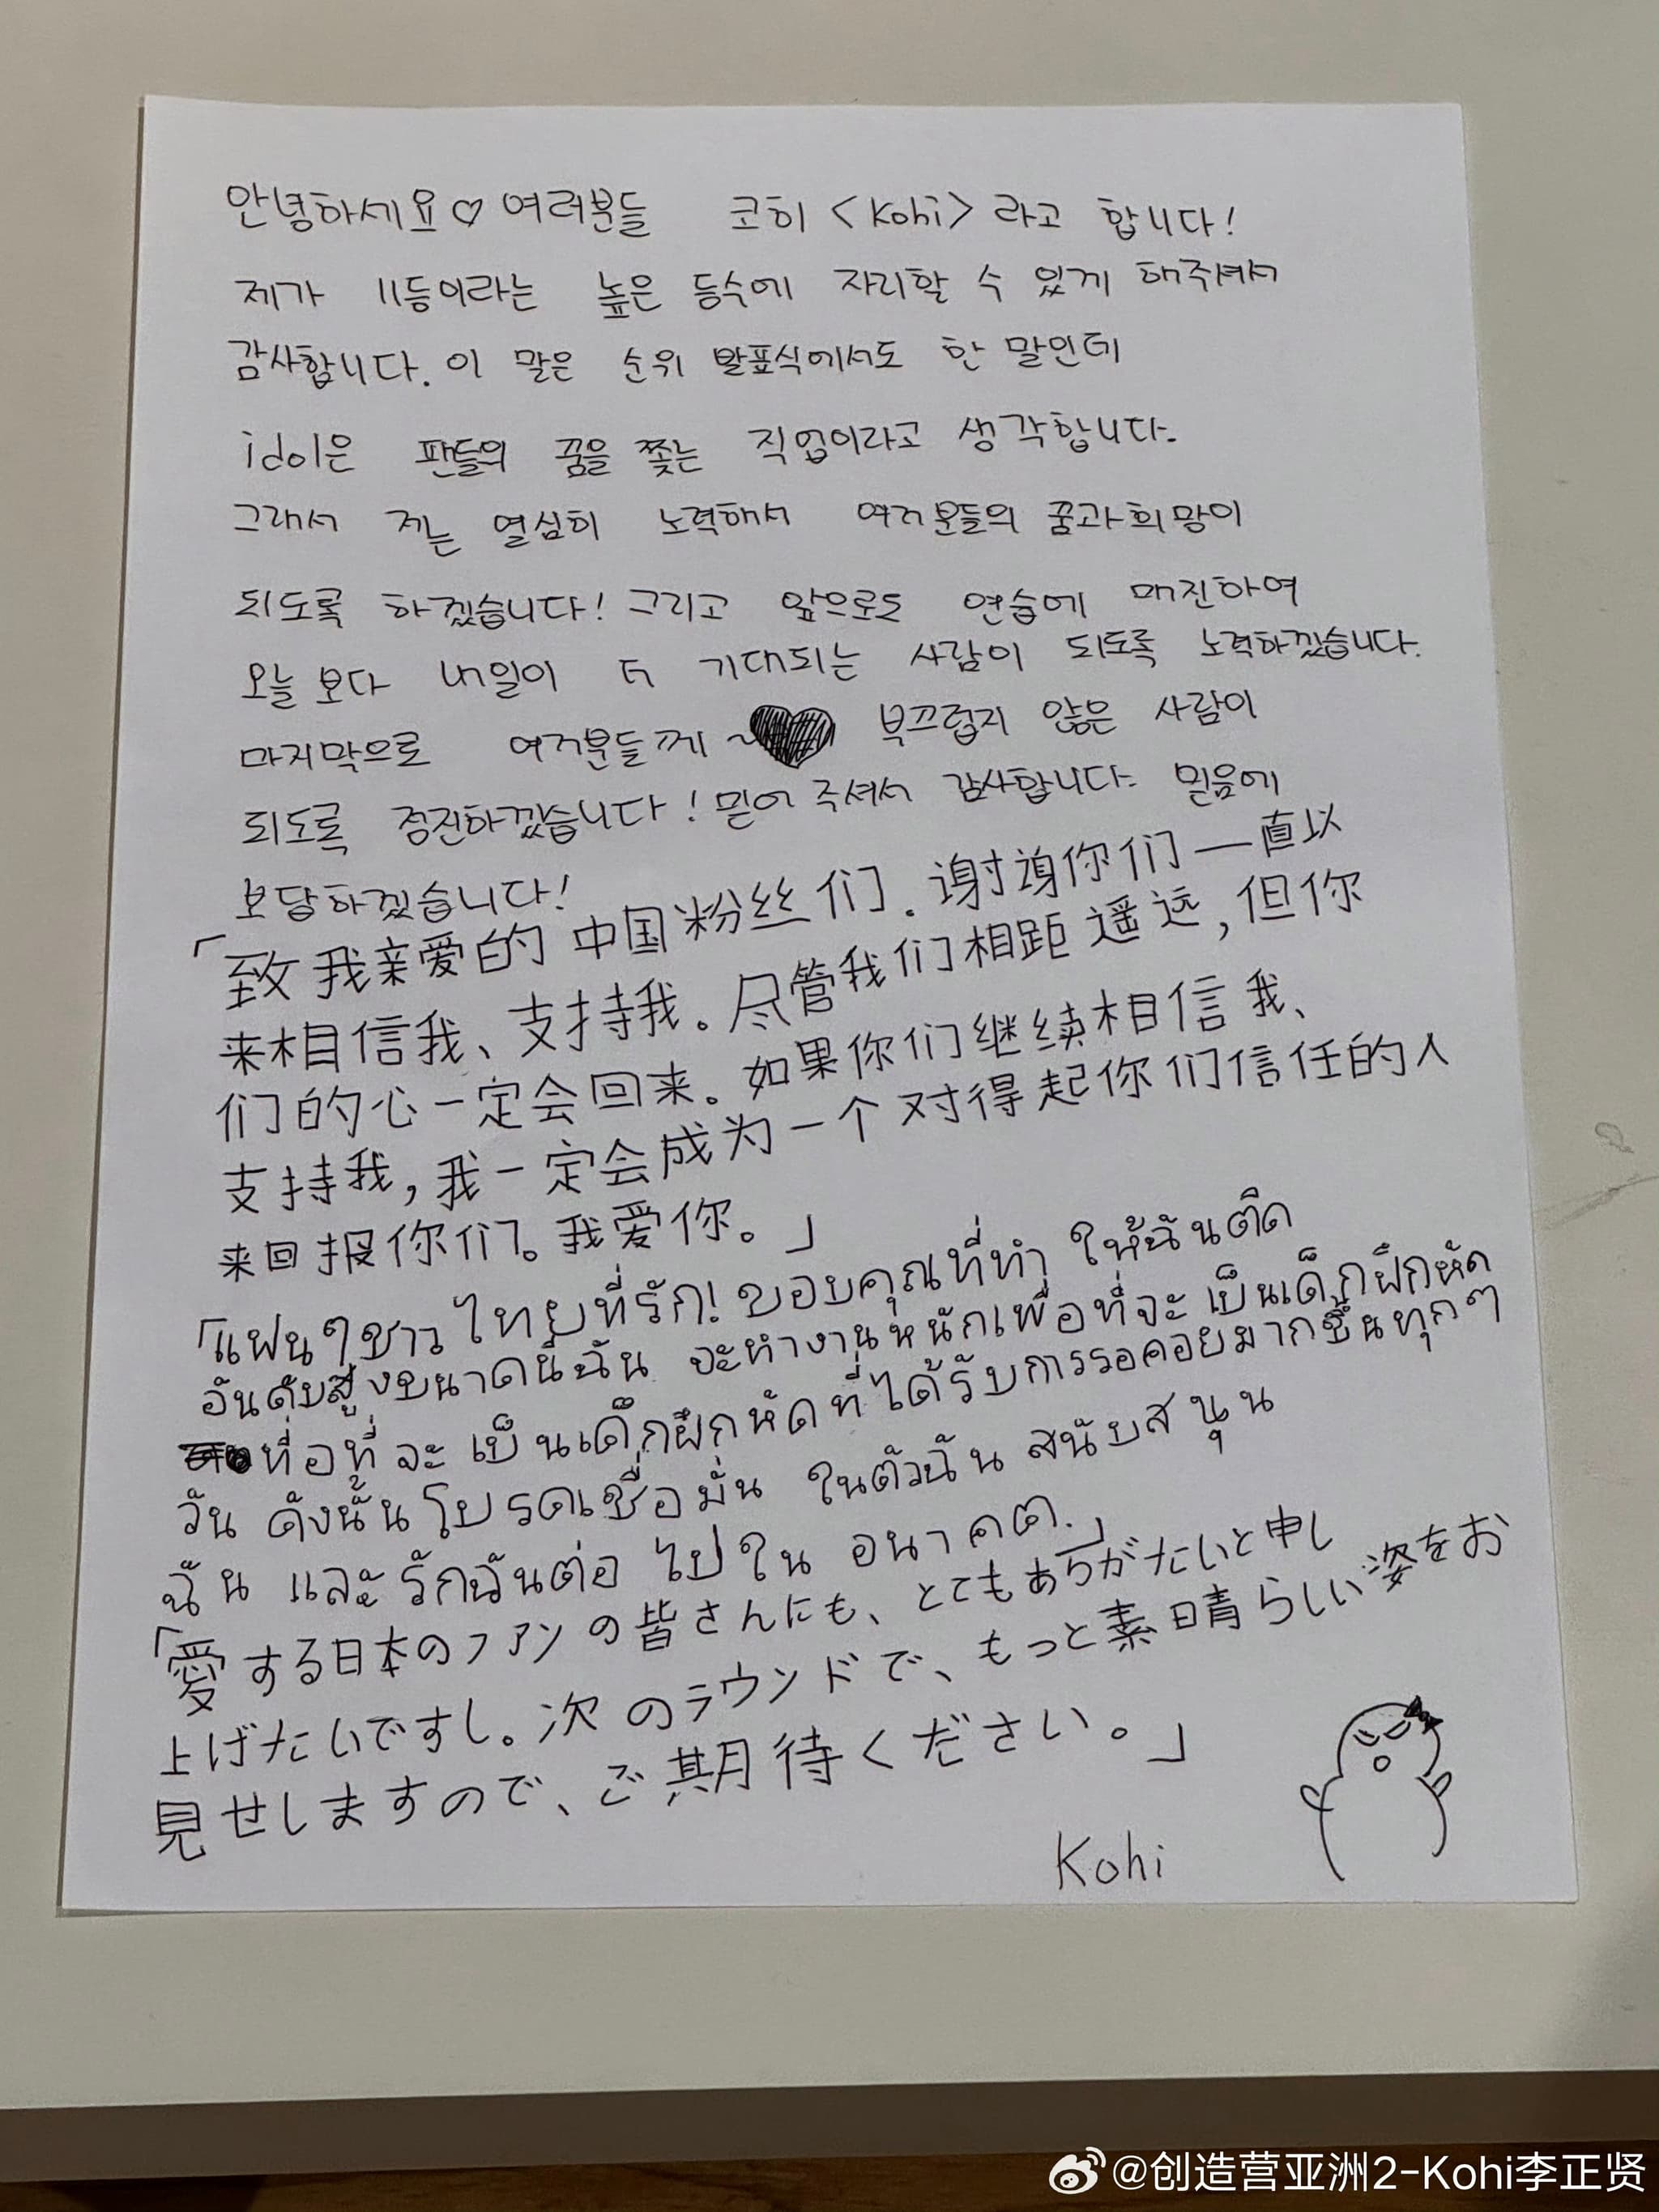 안녕하세요♡ 여러분들 코히 <Kohi> 라고 합니다!
제가 11등이라는 높은 등수에 자리할 수 있게 해주셔서
감사합니다. 이 말은 순위 발표식에서도 한 말인데
idol은 팬들의 꿈을 쫓는 직업이라고 생각합니다.
그래서 저는 열심히 노력해서 여러분들의 꿈과 희망이
되도록 하겠습니다! 그리고 앞으로도 연습에 매진하여
오늘 보다 내일이 더 기대되는 사람이 되도록 노력하겠습니다.
마지막으로 여러분들께 ~♥ 부끄럽지 않은 사람이
되도록 정진하겠습니다! 믿어 주셔서 감사합니다. 믿음에
보답하겠습니다!
「致我亲爱的中国粉丝们. 谢谢你们一直以
来相信我、支持我。尽管我们相距遥远,但你
们的心一定会回来。如果你们继续相信我、
支持我,我一定会成为一个对得起你们信任的人
来回报你们。我爱你。」
「แฟนๆชาวไทยที่รัก! ขอบคุณที่ทำ ให้ฉันติด
อันดับสูงขนาดนี้ฉัน จะทำงานหนักเพื่อที่จะ เป็นเด็กฝึกหัด
ที่อที่จะ เป็นเด็กฝึกหัดที่ได้รับการรอคอยมากขึ้นทุกๆ
วัน ดังนั้นโปรดเชื่อมั่น ในตัวฉัน สนับสนุน
ฉัน และรักฉันต่อ ไปใน อนาคต.」
「愛する日本のファンの皆さんにも、とてもありがたいと申し
上げたいですし。次のラウンドで、もっと素晴らしい姿をお
見せしますので、ご期待ください。」
Kohi
@创造营亚洲2-Kohi李正贤